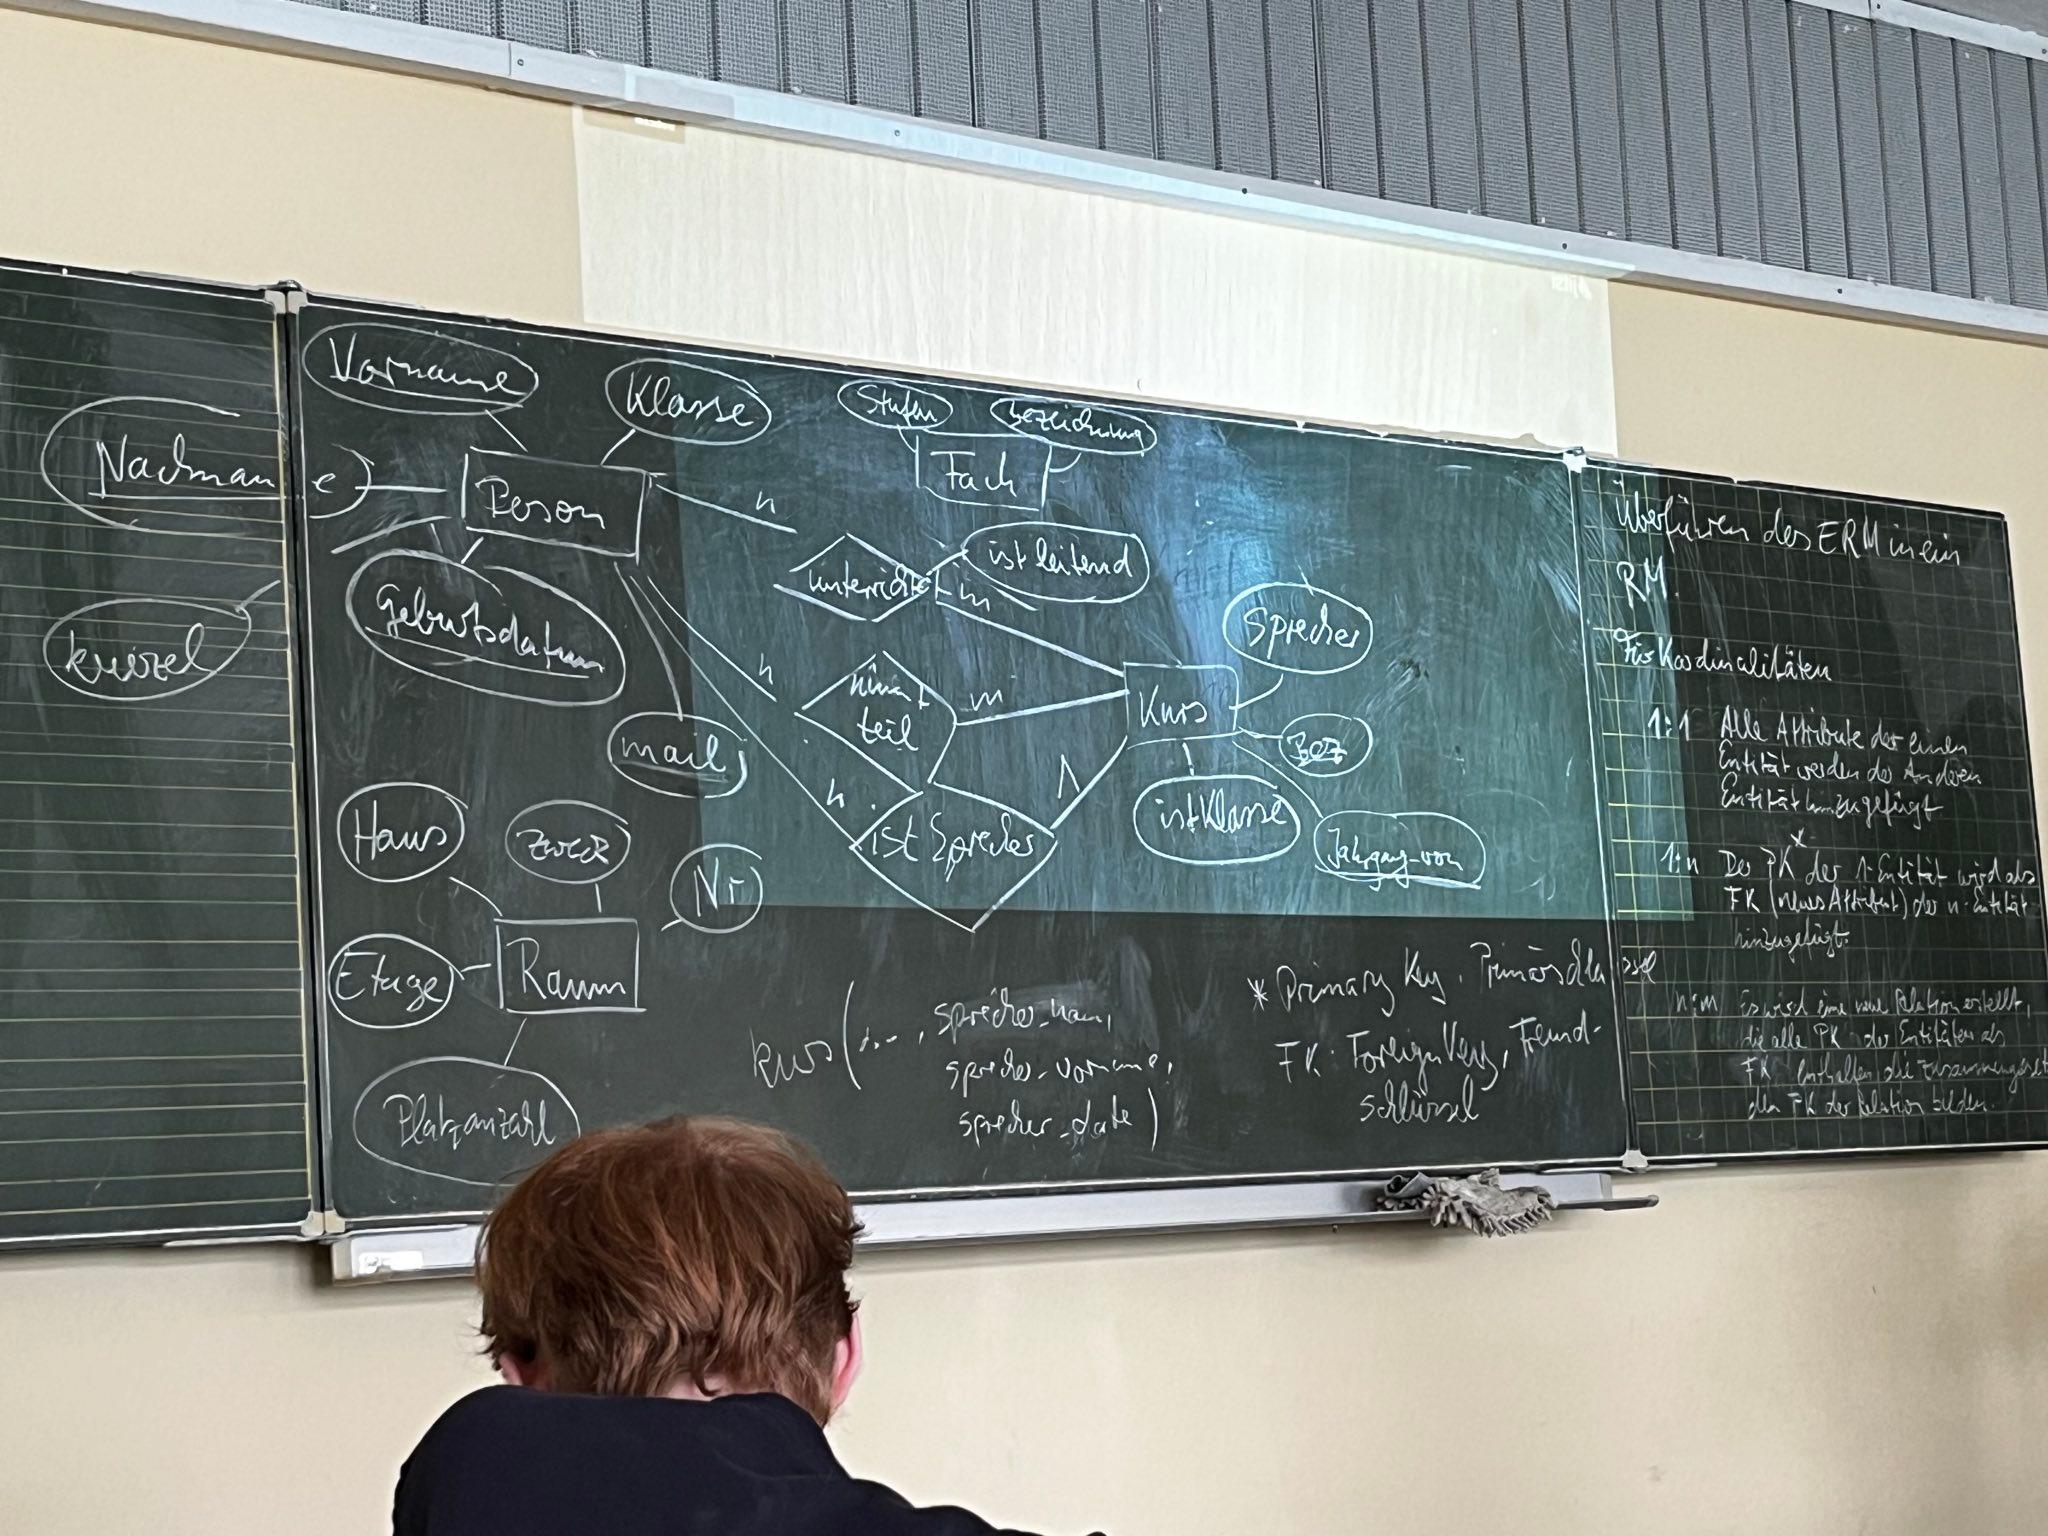 Vorname
Klasse
Stufen
Bezeichnung
Nachname
Person
Fach
n
unterrichtet
m
ist leitend
Geburtsdatum
kürzel
Sprecher
n
nimmt
teil
m
Kurs
Bez
mail
n
ist Sprecher
1
istKlasse
Jahrgang-von
Haus
Zweck
Nr
Etage
Raum
Platzanzahl
kurs(..., sprecher_nam,
sprecher_vorname,
sprecher_date)
* Primary Key, Primärschlüssel
FK: Foreign Key, Fremd-
schlüssel
Überführen des ERM in ein
RM
Für Kardinalitäten
1:1 Alle Attribute der einen
Entität werden der Anderen
Entität hinzugefügt
1:n Der PK* der 1-Entität wird als
FK (neues Attribut) der n-Entität
hinzugefügt.
n:m Es wird eine neue Relation erstellt,
die alle PK der Entitäten als
FK enthalten, die zusammengesetzt
den PK der Relation bilden.